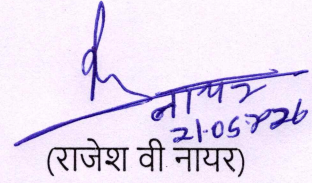 नायर
21.05.2026
(राजेश वी नायर)